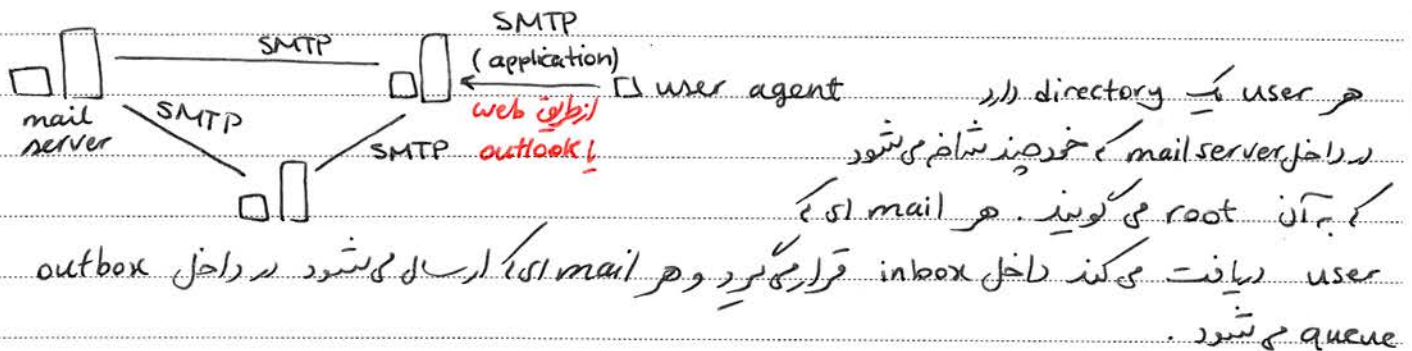 SMTP
SMTP
(application)
user agent
هر user یک directory دارد
از طریق web
یا outlook
mail
server
SMTP
SMTP
در داخل mail server که خود چند شاخه می‌شود
که به آن root می‌گویند. هر mail ای که
user دریافت می‌کند داخل inbox قرار می‌گیرد و هر mail ای که ارسال می‌شود در داخل outbox
queue می‌شود.